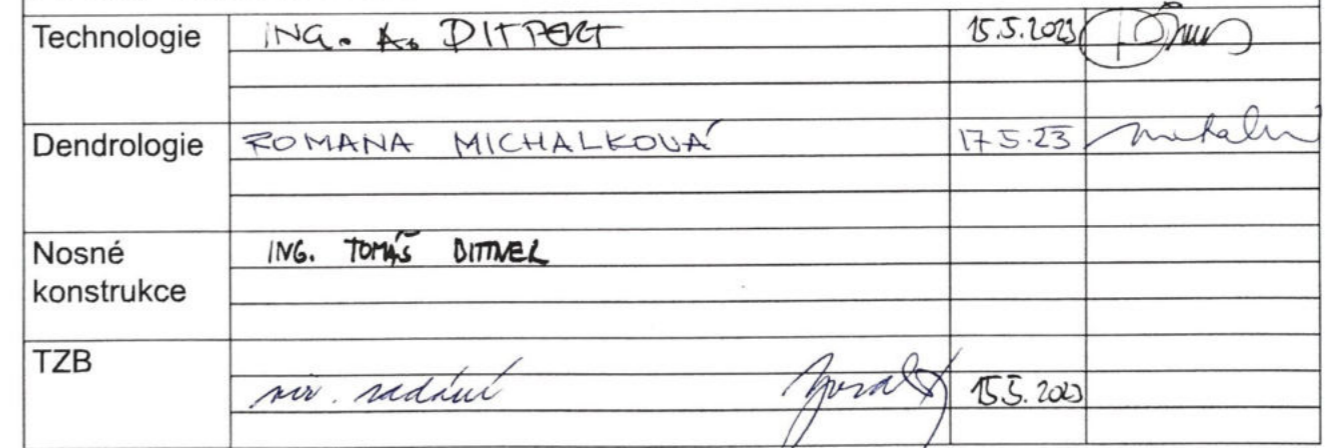 Technologie ING. A. DITTERT 15.5.2023
Dendrologie ROMANA MICHALKOVÁ 17.5.23
Nosné ING. TOMÁŠ BITTNER
konstrukce
TZB
viz. zadání 15.5.2023